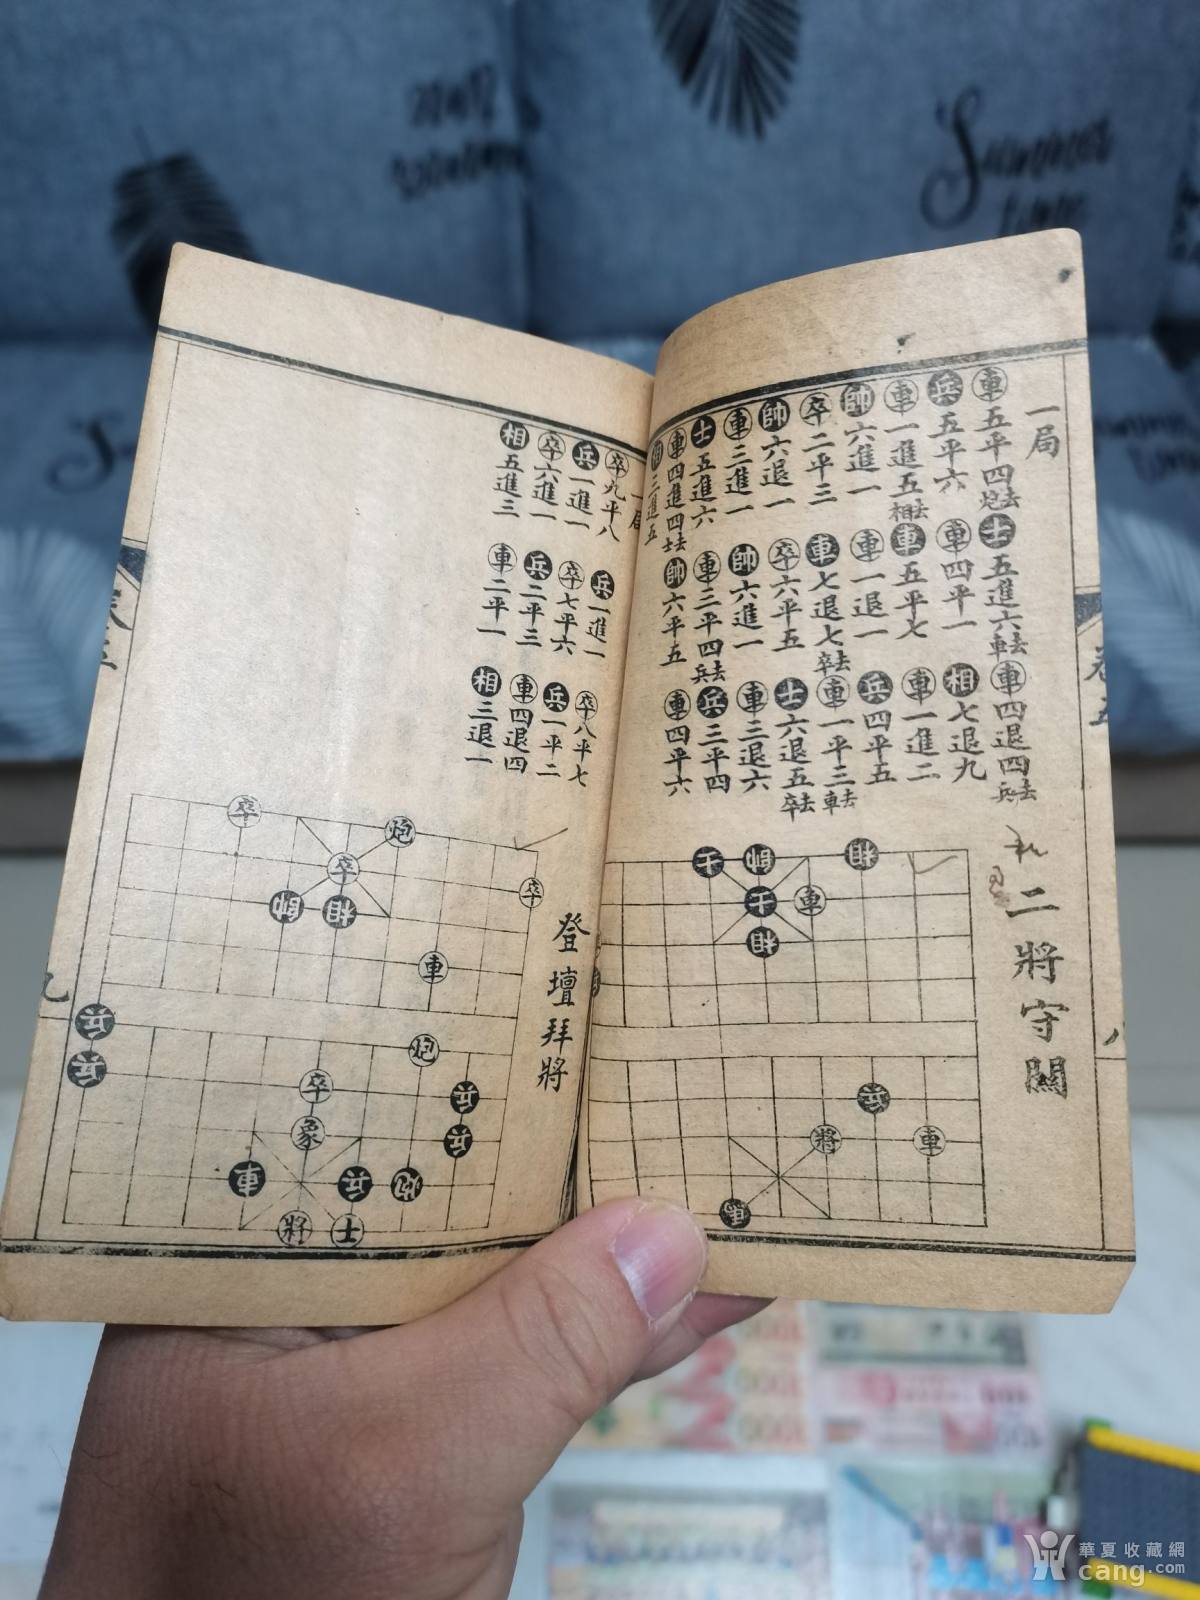 一局
車五平四去炮 士五進六去車 車四退四去兵
兵五平六 車四平一 相七退九
車一進五去相 車五平七 車一進二
帥六進一 車一退一 兵四平五
卒二平三 車七退七去卒 車一平三去車
帥六退一 卒六平五 士六退五去卒
車三進一 帥六進一 車三退六
士五進六 車三平四去兵 兵三平四
車四進四去士 帥六平五 車四平六
相三進五
二將守關
卷五
八
士 帥 相
士 車
相
兵
將 車
馬
一局
卒九平八 兵一進一 卒八平七
兵一進一 卒七平六 兵一平二
卒六進一 兵二平三 車四退四
相五進三 車二平一 相三退一
登壇拜將
卒 炮
卒 卒
帥 相
車
兵 炮
兵 卒 兵
象 兵
車 兵 炮
將 士
Summer
time
華夏收藏網
cang.com